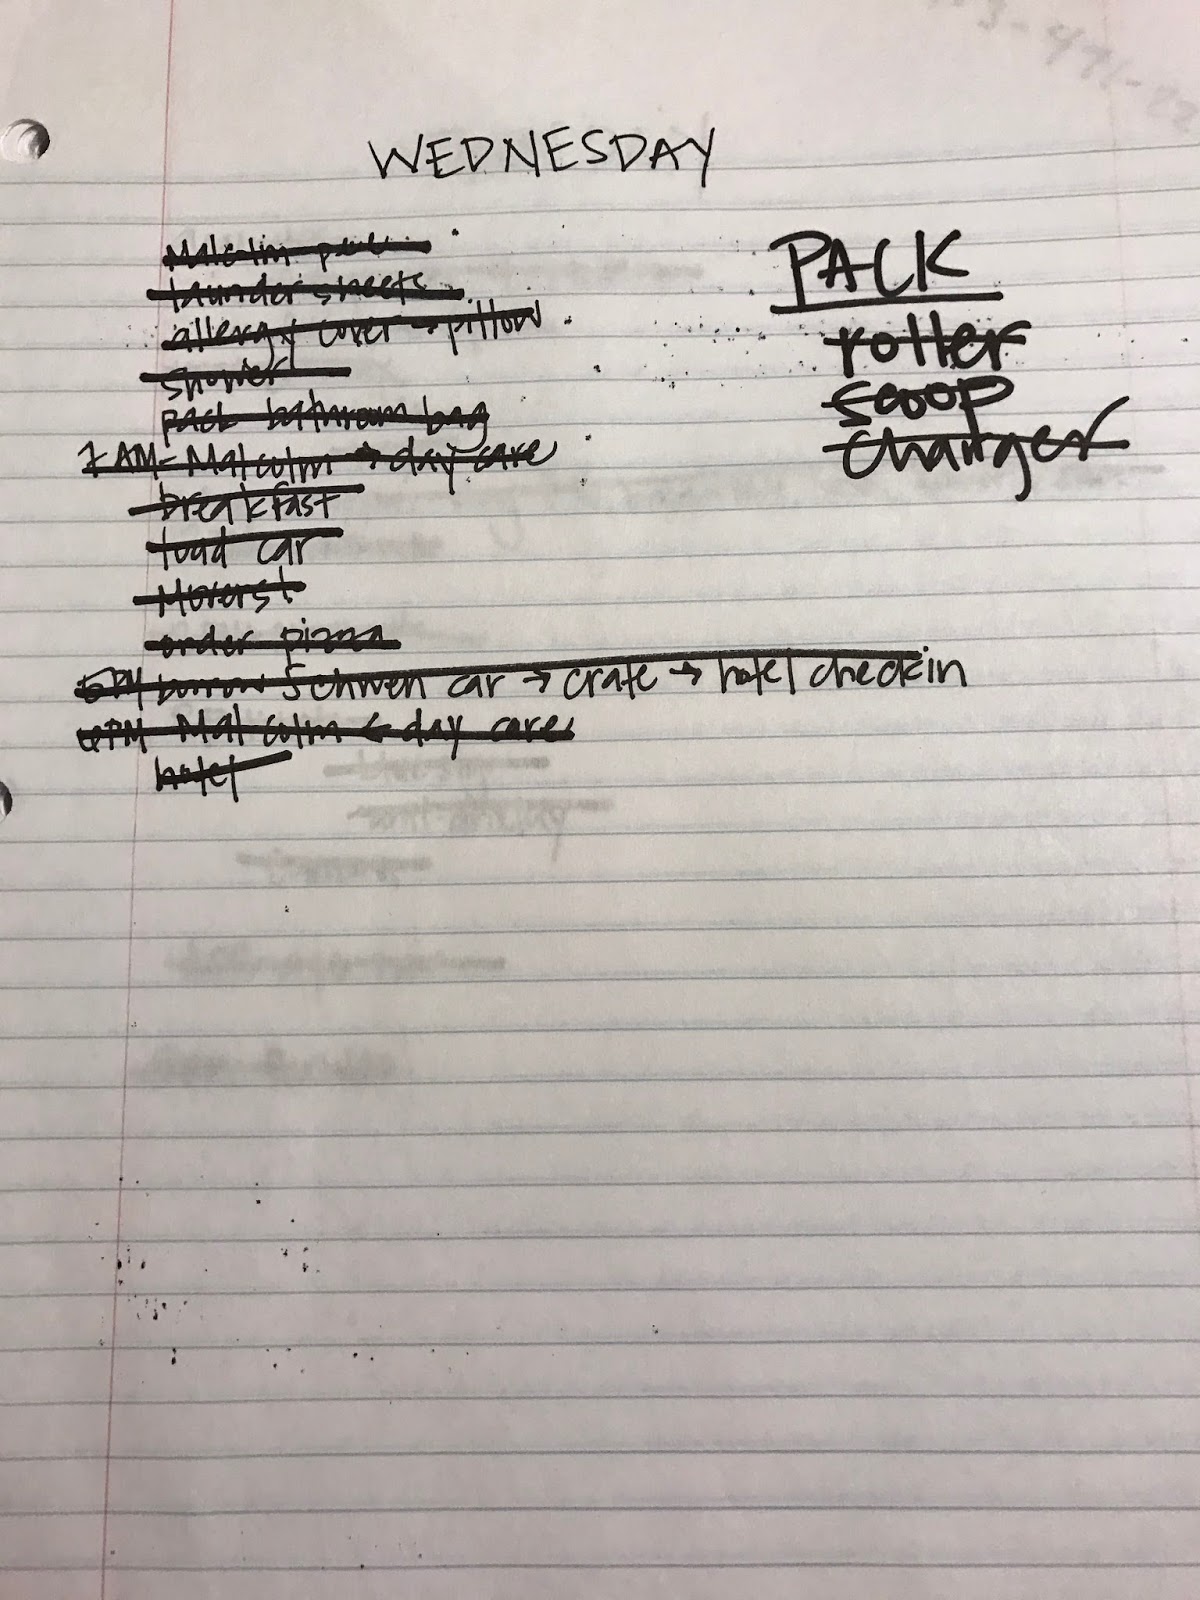 WEDNESDAY
Malcolm
launder sheets
allergy cover → pillow
shower
pack bathroom bag
7 AM - Malcolm → day care
breakfast
load car
Movers!
order pizza
5PM borrow Schwen car → crate → hotel checkin
6PM Malcolm ← day care
hotel
PACK
roller
scoop
charger